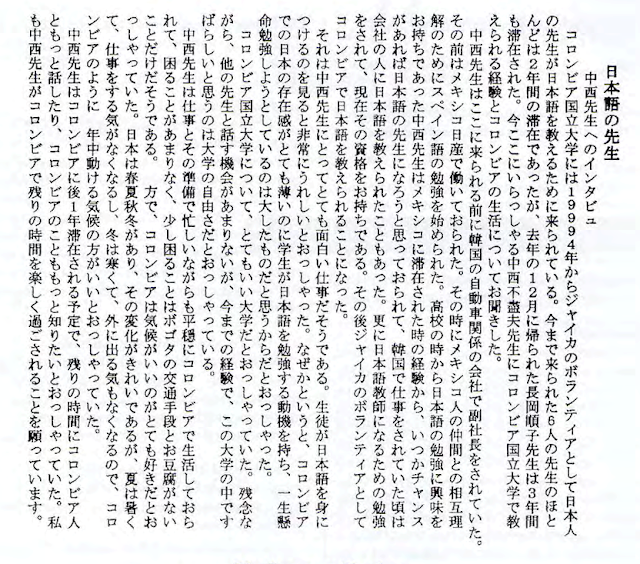 日本語の先生
中西先生へのインタビュ
コロンビア国立大学には１９９９４年からジャイカのボランティアとして日本人
の先生が日本語を教えるために来られている。今まで来られた６人の先生のほと
んどは２年間の滞在であったが、去年の１２月に帰られた長岡順子先生は３年間
も滞在された。今ここにいらっしゃる中西不盡夫先生にコロンビア国立大学で教
えられる経験とコロンビアの生活についてお聞きした。
中西先生はここに来られる前に韓国の自動車関係の会社で副社長をされていた。
その前はメキシコ日産で働いておられた。その時にメキシコ人の仲間との相互理
解のためにスペイン語の勉強を始められた。高校の時から日本語の勉強に興味を
お持ちであった中西先生はメキシコに滞在された時の経験から、いつかチャンス
があれば日本語の先生になろうと思っておられて、韓国で仕事をされていた頃は
会社の人に日本語を教えられたこともあった。更に日本語教師になるための勉強
をされて、現在その資格をお持ちである。その後ジャイカのボランティアとして
コロンビアで日本語を教えられることになった。
それは中西先生にとってとても面白い仕事だそうである。生徒が日本語を身に
つけるのを見ると非常にうれしいとおっしゃった。なぜかというと、コロンビア
での日本の存在感がとても薄いのに学生が日本語を勉強する動機を持ち、一生懸
命勉強しようとしているのは大したものだと思うからだとおっしゃった。
コロンビア国立大学について、とてもいい大学だとおっしゃっていた。残念な
がら、他の先生と話す機会があまりないが、今までの経験で、この大学の中です
ばらしいと思うのは大学の自由さだとおっしゃっている。
中西先生は仕事とその準備で忙しいながらも平穏にコロンビアで生活しておら
れて、困ることがあまりなく、少し困ることはボゴタの交通手段とお豆腐がない
ことだけだそうである。 方で、コロンビアは気候がいいのがとても好きだとお
っしゃっていた。日本は春夏秋冬があり、その変化がきれいであるが、夏は暑く
て、仕事をする気がなくなるし、冬は寒くて、外に出る気もなくなるので、コロ
ンビアのように 年中動ける気候の方がいいとおっしゃっていた。
中西先生はコロンビアに後１年滞在される予定で、残りの時間にコロンビア人
ともっと話したり、コロンビアのことももっと知りたいとおっしゃっていた。私
も中西先生がコロンビアで残りの時間を楽しく過ごされることを願っています。